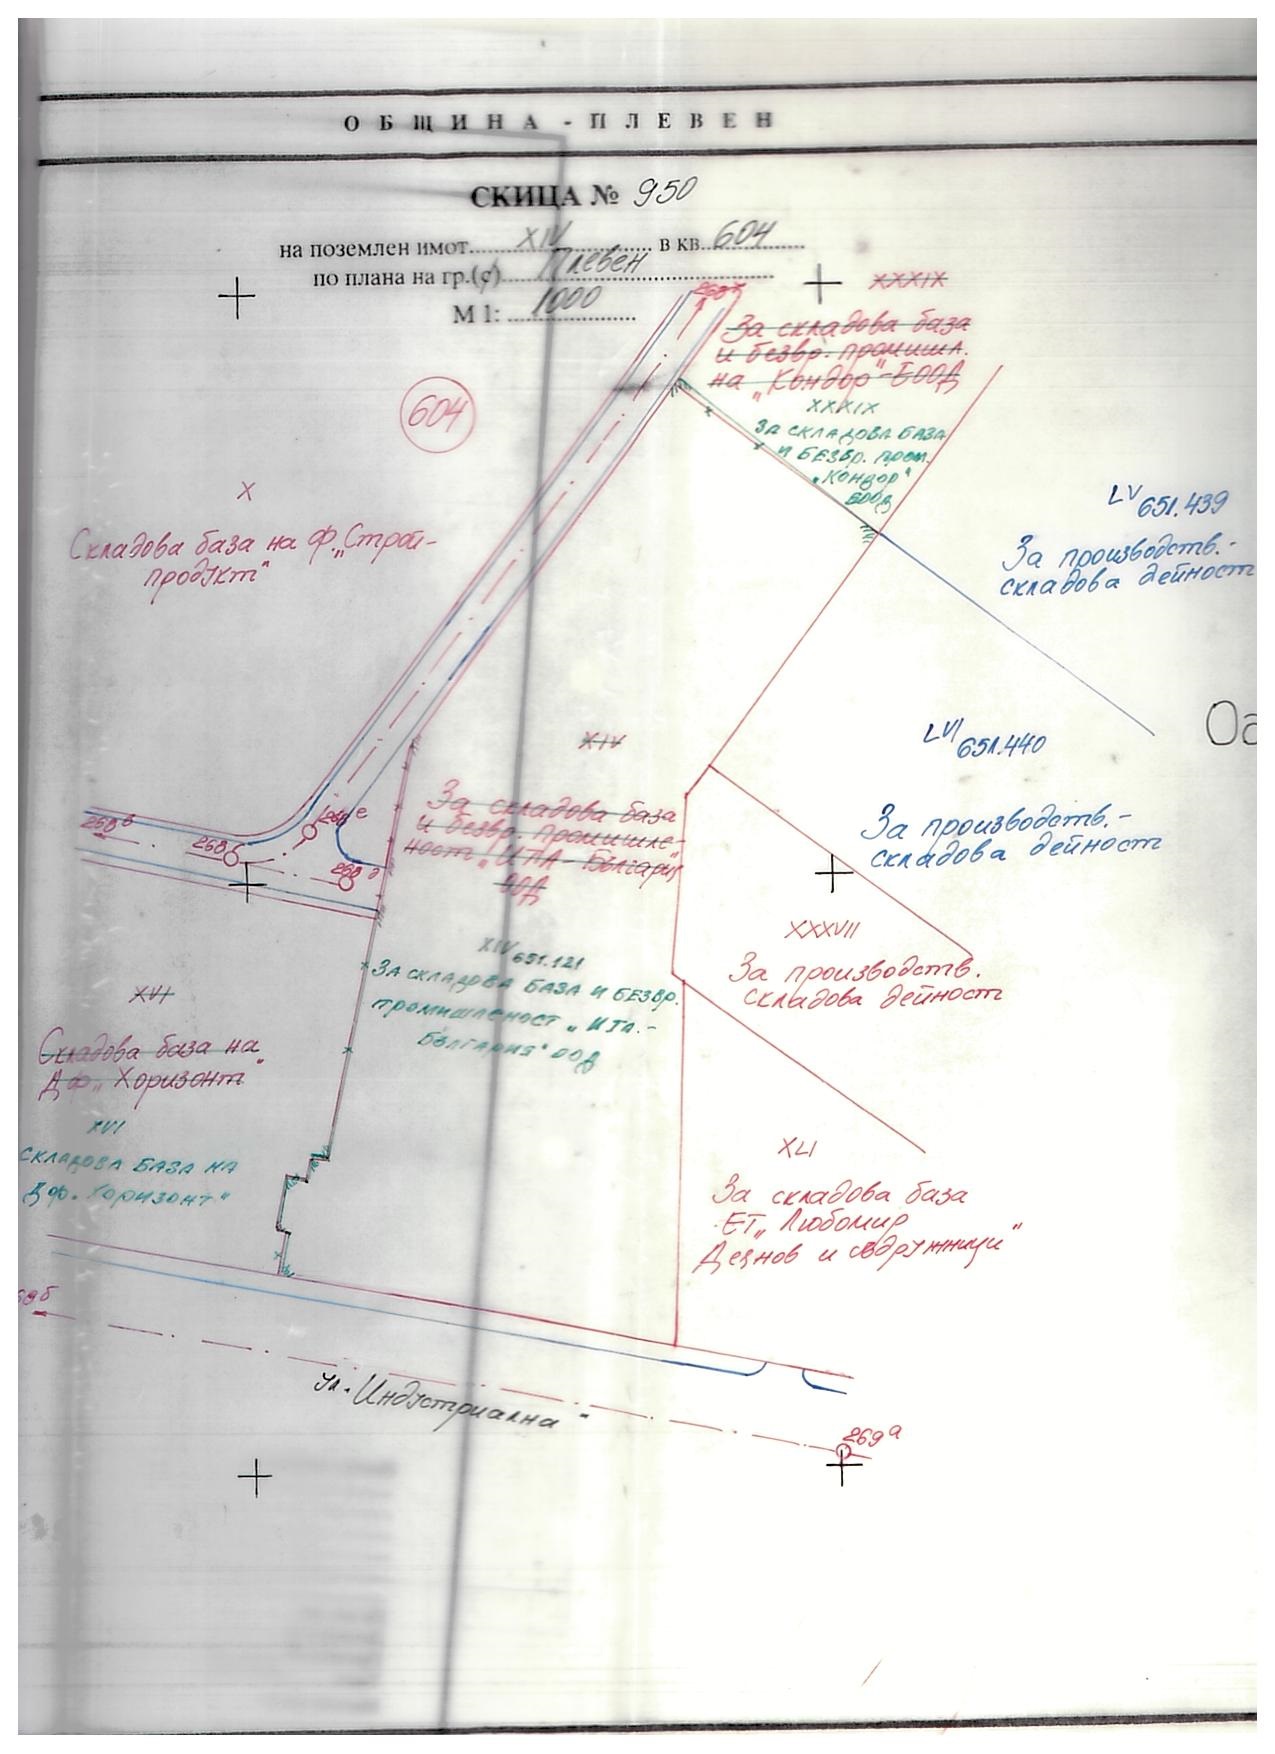 ОБЩИНА - ПЛЕВЕН
СКИЦА № 950
на поземлен имот XIV в кв. 604
по плана на гр.(с) Плевен
М 1: 1000
XXXIX
За складова база
и безвр. промишл.
на „Кондор" ООД
XXXIX
ЗА СКЛАДОВА БАЗА
И БЕЗВР. ПРОМ.
„КОНДОР"
ООД
604
X
Складова база на ф. „Строй-
продукт"
LV 651.439
За производств.-
складова дейност
Оа
LVI 651.440
За производств.-
складова дейност
XIV
За складова база
и безвр. промишле-
ност „ИГА - България"
ООД
268
268 е
268 д
XXXVII
За производств.
складова дейност
XIV 651.121
ЗА СКЛАДОВА БАЗА И БЕЗВР.
ПРОМИШЛЕНОСТ „ИГА.-
БЪЛГАРИЯ" ООД
XVI
Складова база на
Дф. „Хоризонт"
XVI
СКЛАДОВА БАЗА НА
Дф. „Хоризонт"
XLI
За складова база
ЕТ „Любомир
Дечнов и съдружници"
ул. „Индустриална"
269 а